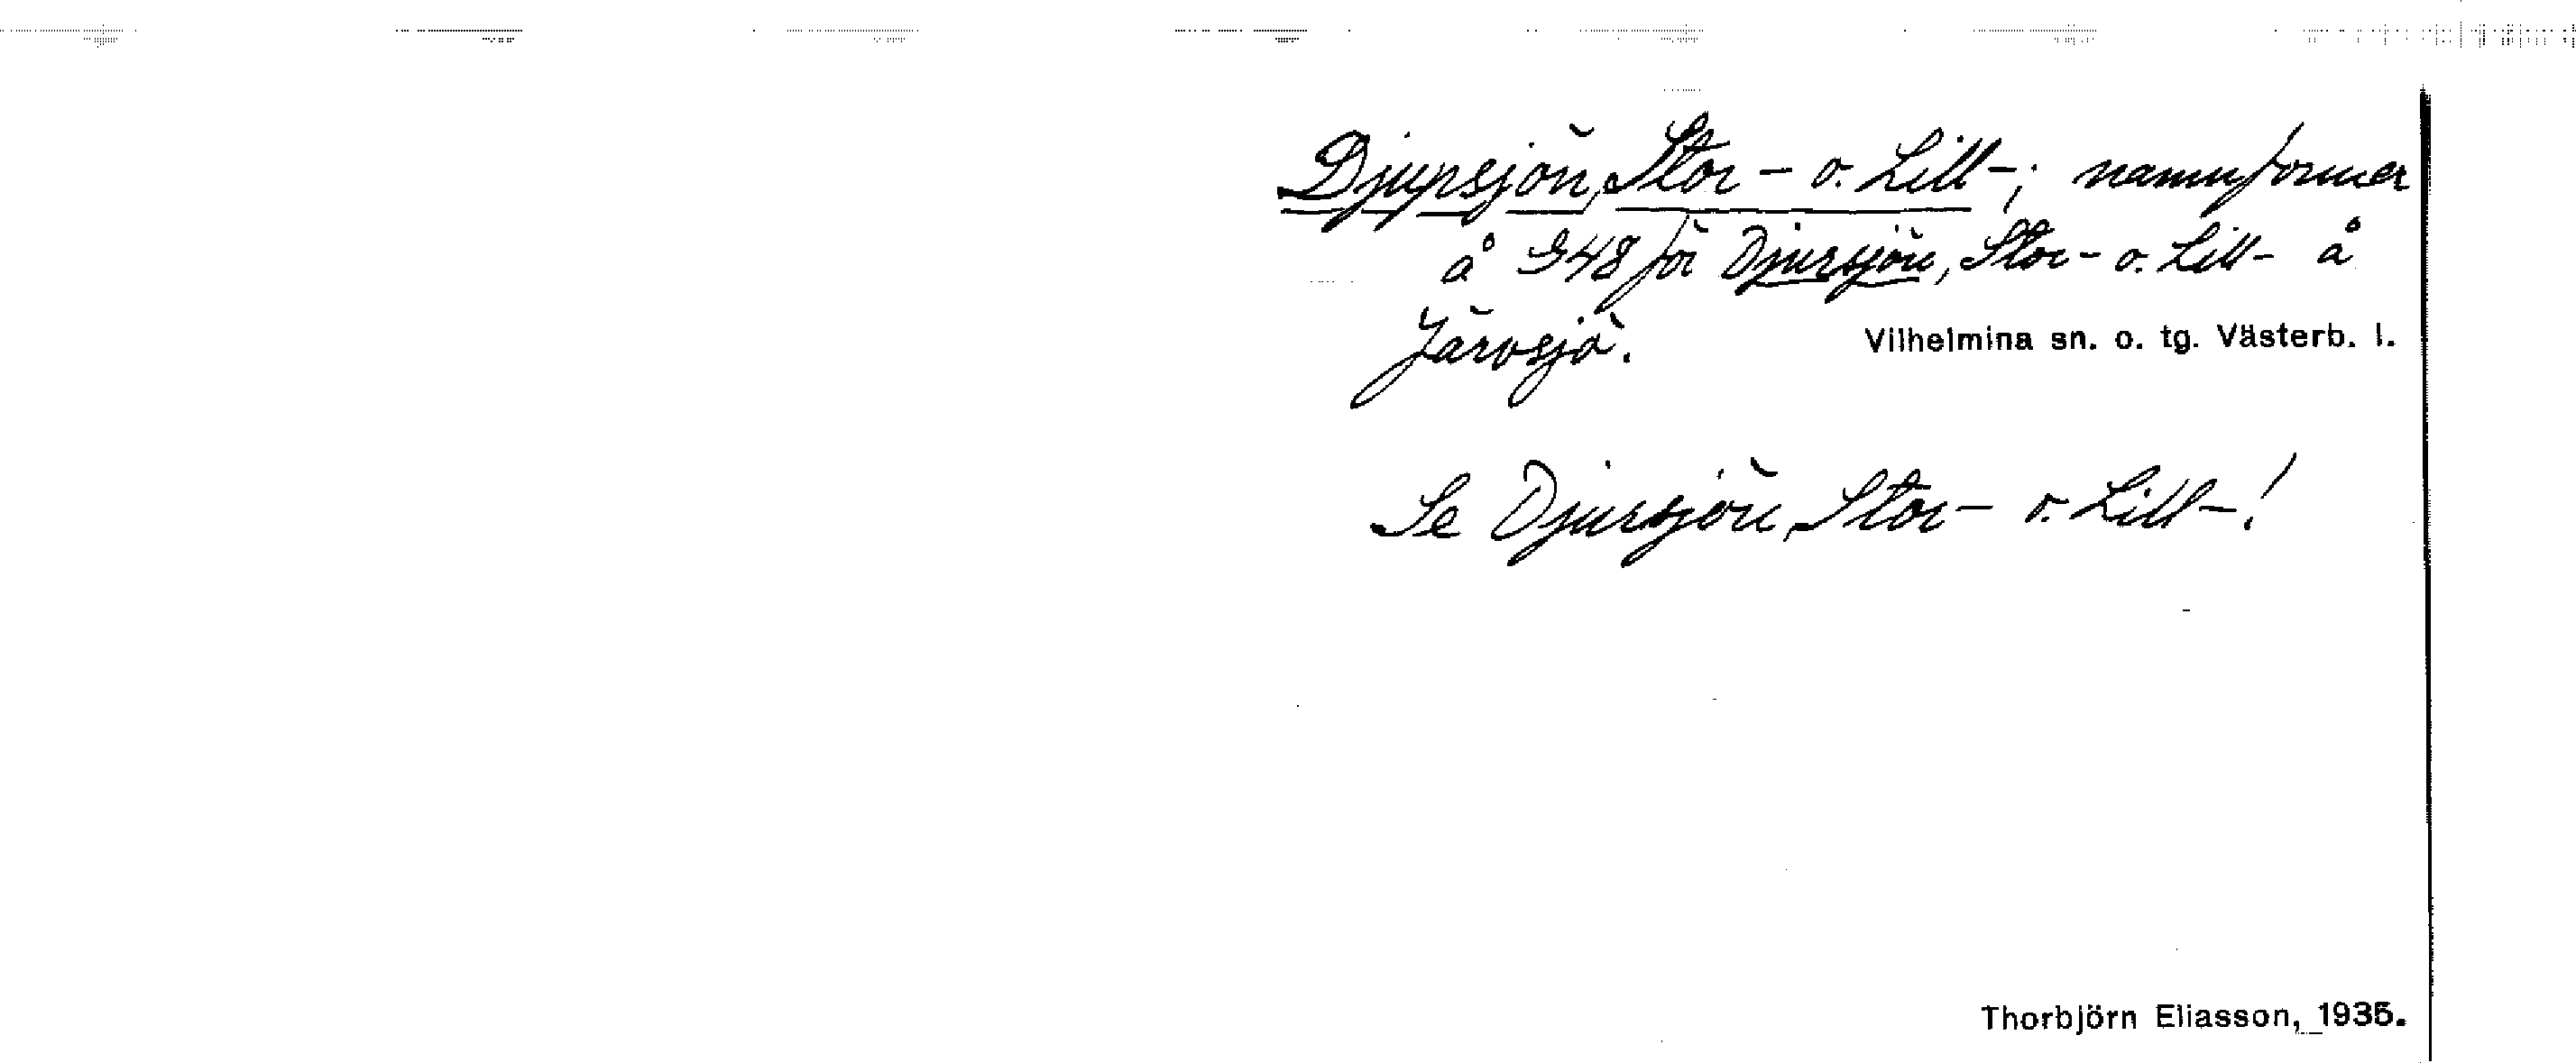 Djupsjön, Stor- o. Lill-; namnformer
å G48 för Djursjön, Stor- o. Lill- å
Järvsjö.
Vilhelmina sn. o. tg. Västerb. l.
Se Djursjön, Stor- o. Lill-!
Thorbjörn Eliasson, 1935.